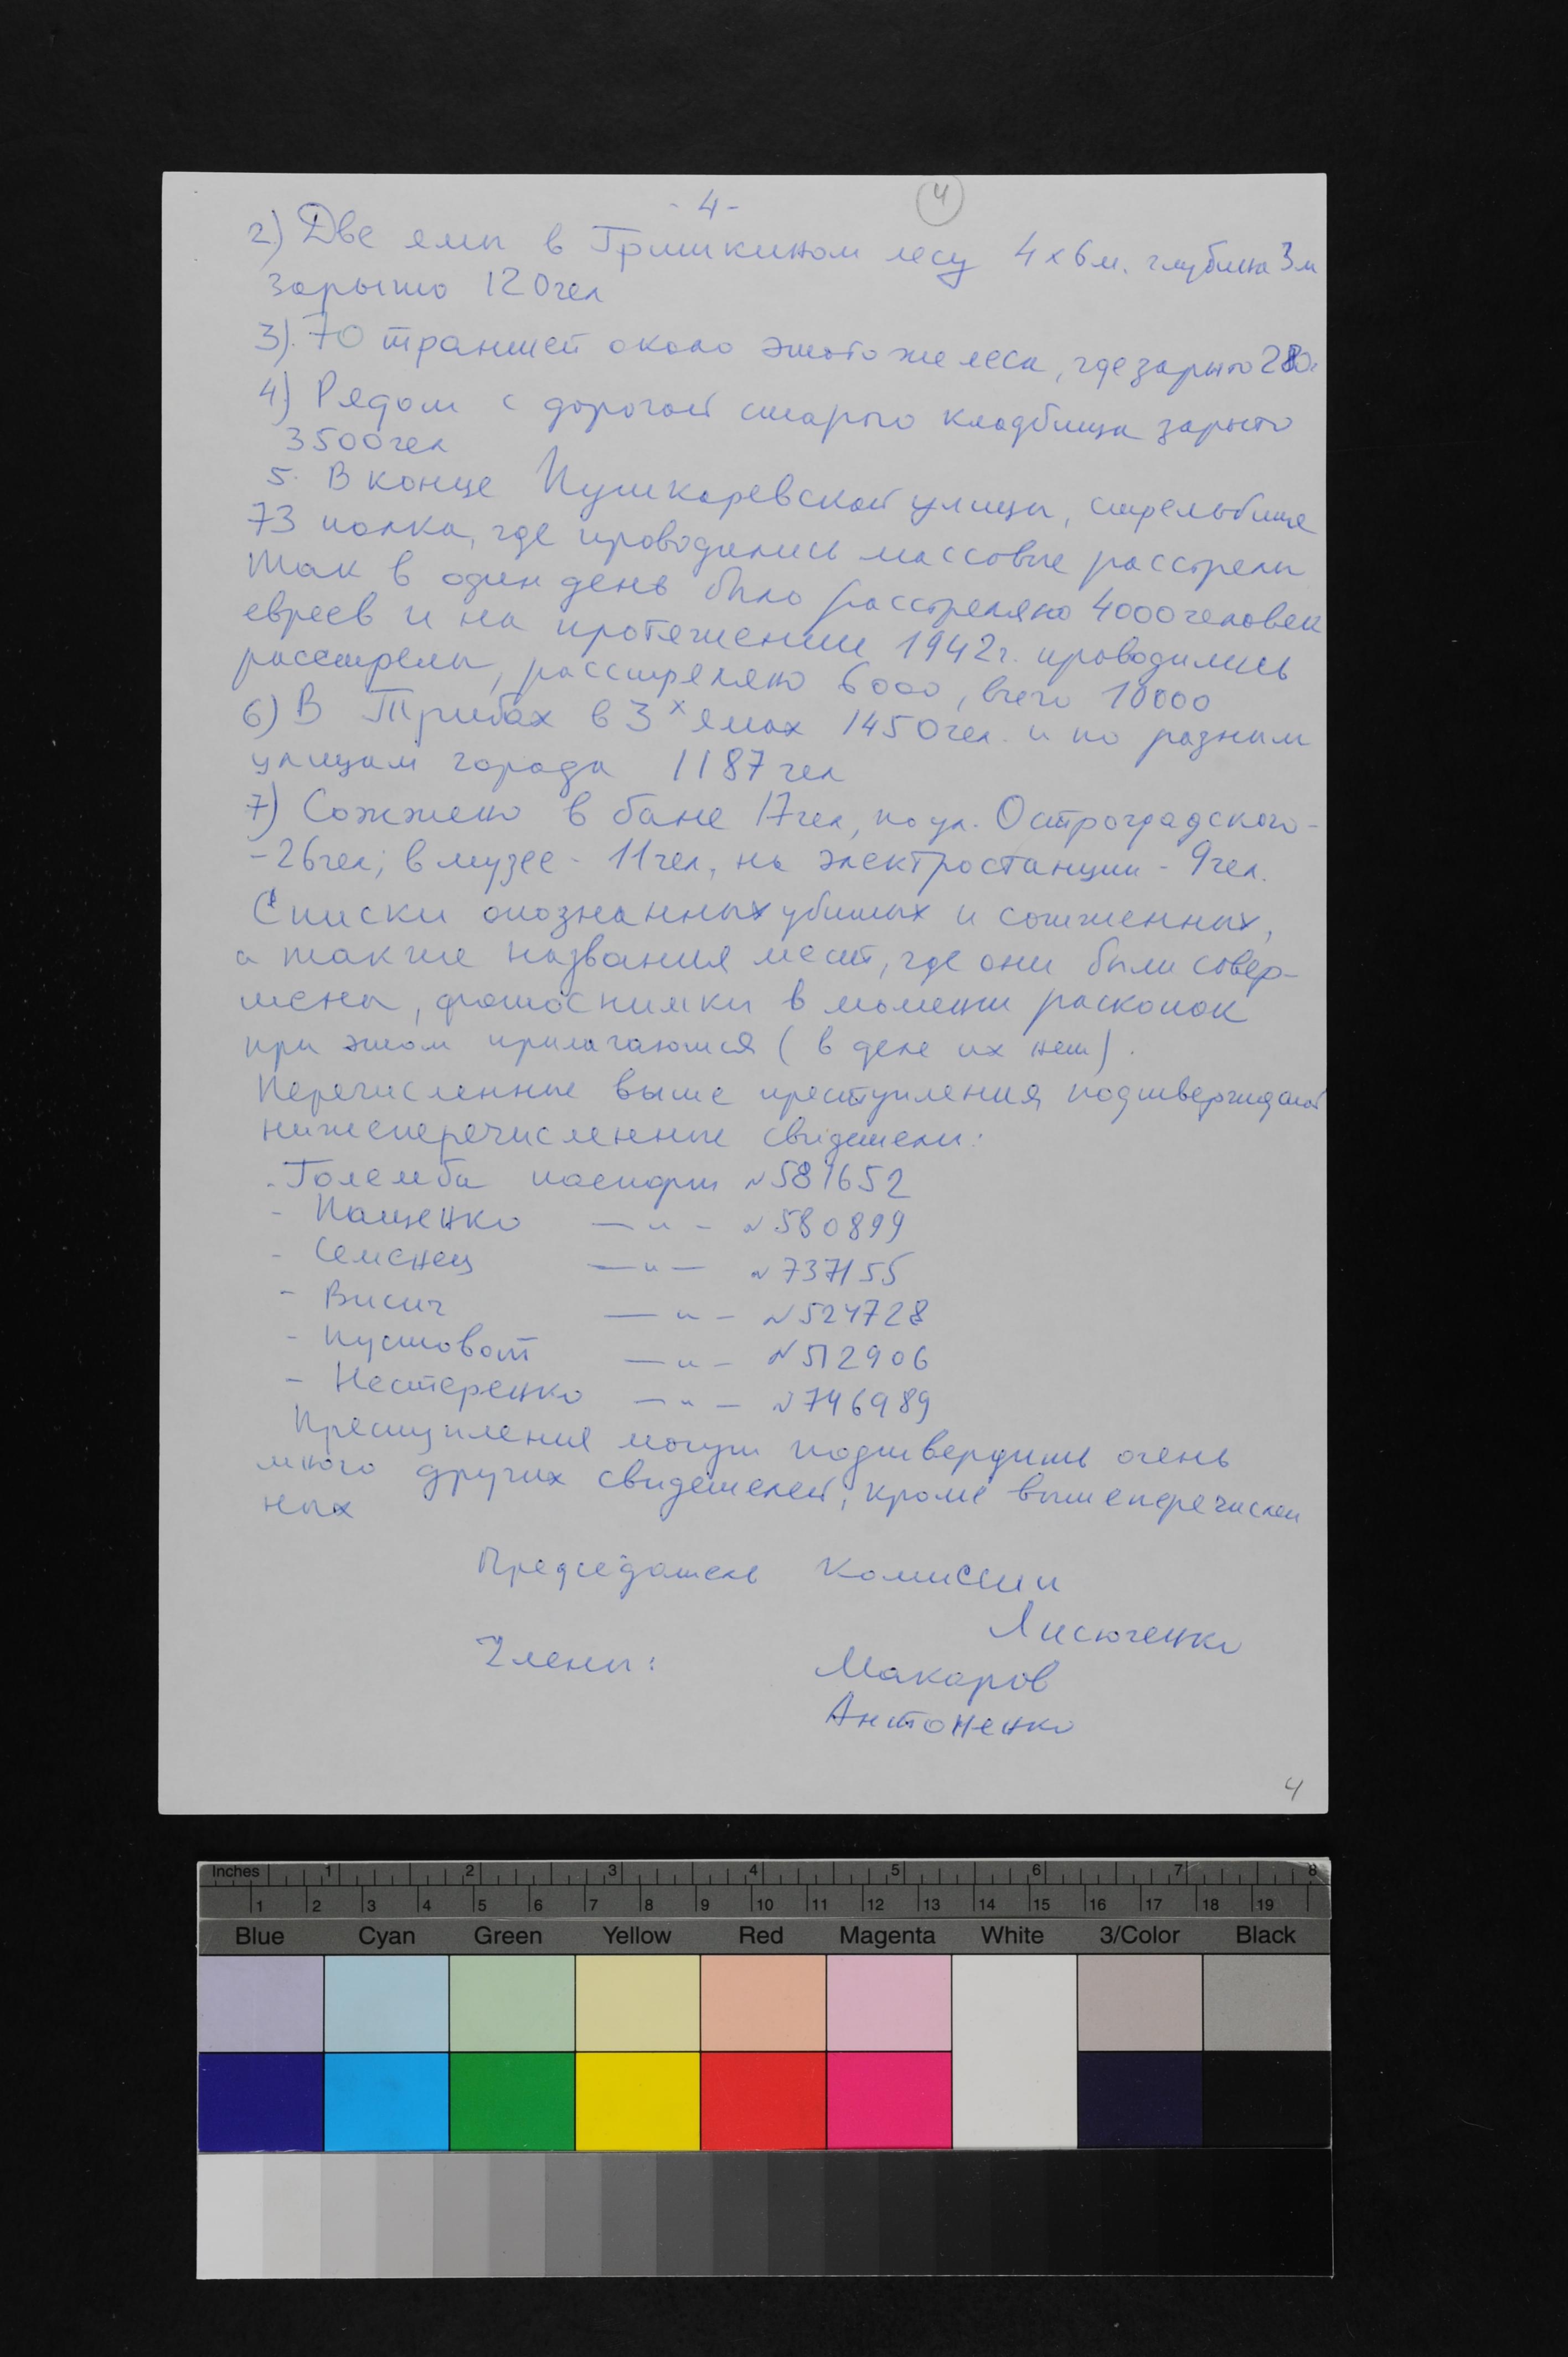 - 4 -
4
2) Две ямы в Гришкином лесу 4 x 6 м. глубина 3 м
зарыто 120 чел
3). 70 траншей около этого же леса, где зарыто 280
4) Рядом с дорогой старого кладбища зарыто
3500 чел
5. В конце Пушкаревской улицы, стрельбище
73 полка, где проводились массовые расстрелы
Так в один день было расстреляно 4000 человек
евреев и на протяжении 1942 г. проводились
расстрелы, расстреляно 6000, всего 10000
6) В Трибах в 3х ямах 1450 чел. и по разным
улицам города 1187 чел
7) Сожжено в бане 17 чел, по ул. Остроградского -
- 26 чел; в музее - 11 чел, на электростанции - 9 чел.
Списки опознанных убитых и сожженных,
а также названия мест, где они были совер-
шены, фотоснимки в момент раскопок
при этом прилагаются ( в деле их нет ).
Перечисленные выше преступления подтверждают
нижеперечисленные свидетели:
- Големба паспорт № 581652
- Пащенко — " — № 580899
- Семенец — " — № 737155
- Висич — " — № 524728
- Пустовойт — " — № 512906
- Нестеренко — " — № 746989
Преступления могут подтвердить очень
много других свидетелей, кроме вышеперечислен
ных
Председатель Комиссии
Лисюченко
Члены: Макаров
Антоненко
4
Inches 1 2 3 4 5 6 7 8
1 2 3 4 5 6 7 8 9 10 11 12 13 14 15 16 17 18 19
Blue Cyan Green Yellow Red Magenta White 3/Color Black